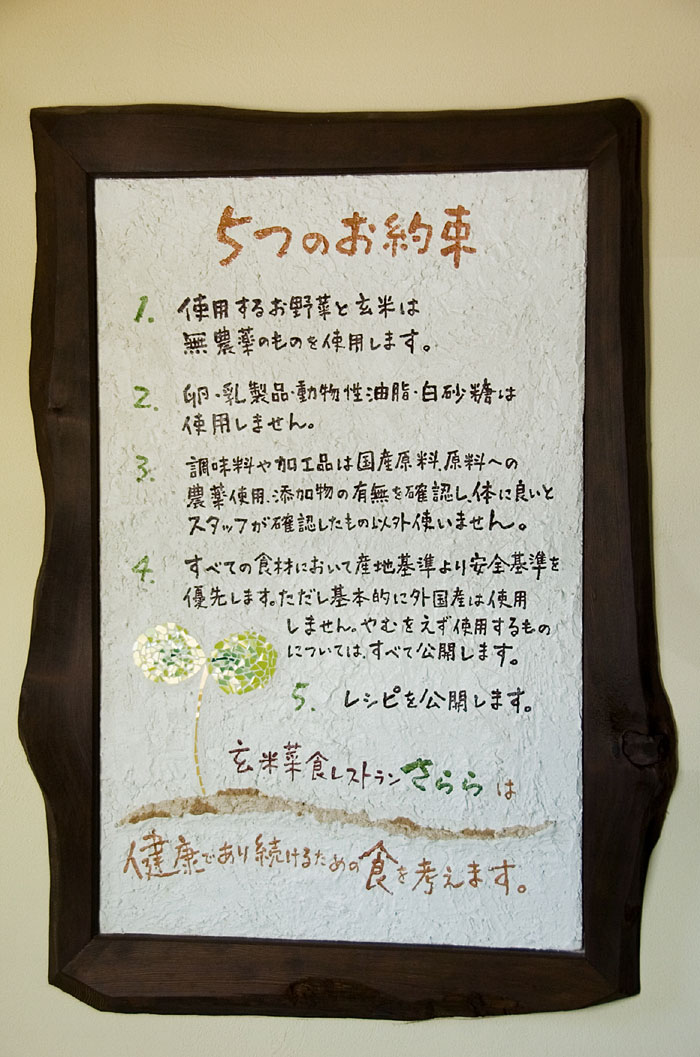 5つのお約束
1. 使用するお野菜と玄米は
無農薬のものを使用します。
2. 卵・乳製品・動物性油脂・白砂糖は
使用しません。
3. 調味料や加工品は国産原料、原料への
農薬使用、添加物の有無を確認し、体に良いと
スタッフが確認したもの以外使いません。
4. すべての食材において産地基準より安全基準を
優先します。ただし基本的に外国産は使用
しません。やむをえず使用するもの
については、すべて公開します。
5. レシピを公開します。
玄米菜食レストランさららは
健康であり続けるための食を考えます。